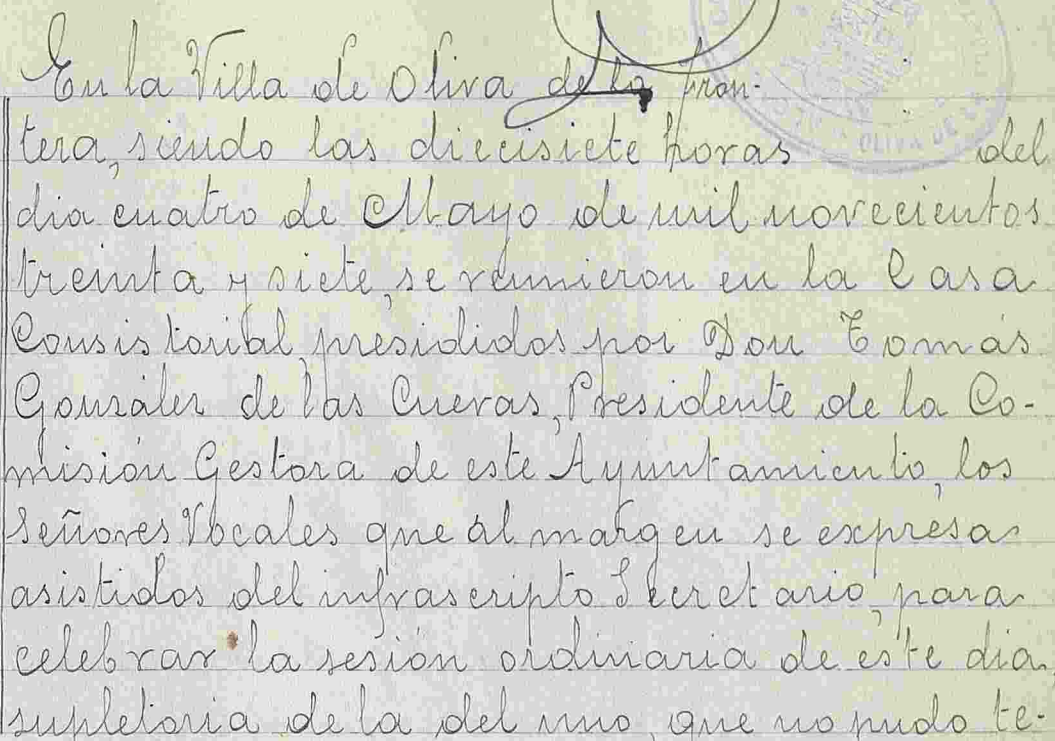 En la Villa de Oliva de la Fron-
tera, siendo las diecisiete horas del
dia cuatro de Mayo de mil novecientos
treinta y siete, se reunieron en la Casa
Consistorial, presididos por Don Tomás
González de las Cuevas, Presidente de la Co-
misión Gestora de este Ayuntamiento, los
Señores Vocales que al margen se expresa
asistidos del infrascripto Secretario, para
celebrar la sesión ordinaria de este dia,
supletoria de la del uno, que no pudo te-
OLIVA DE